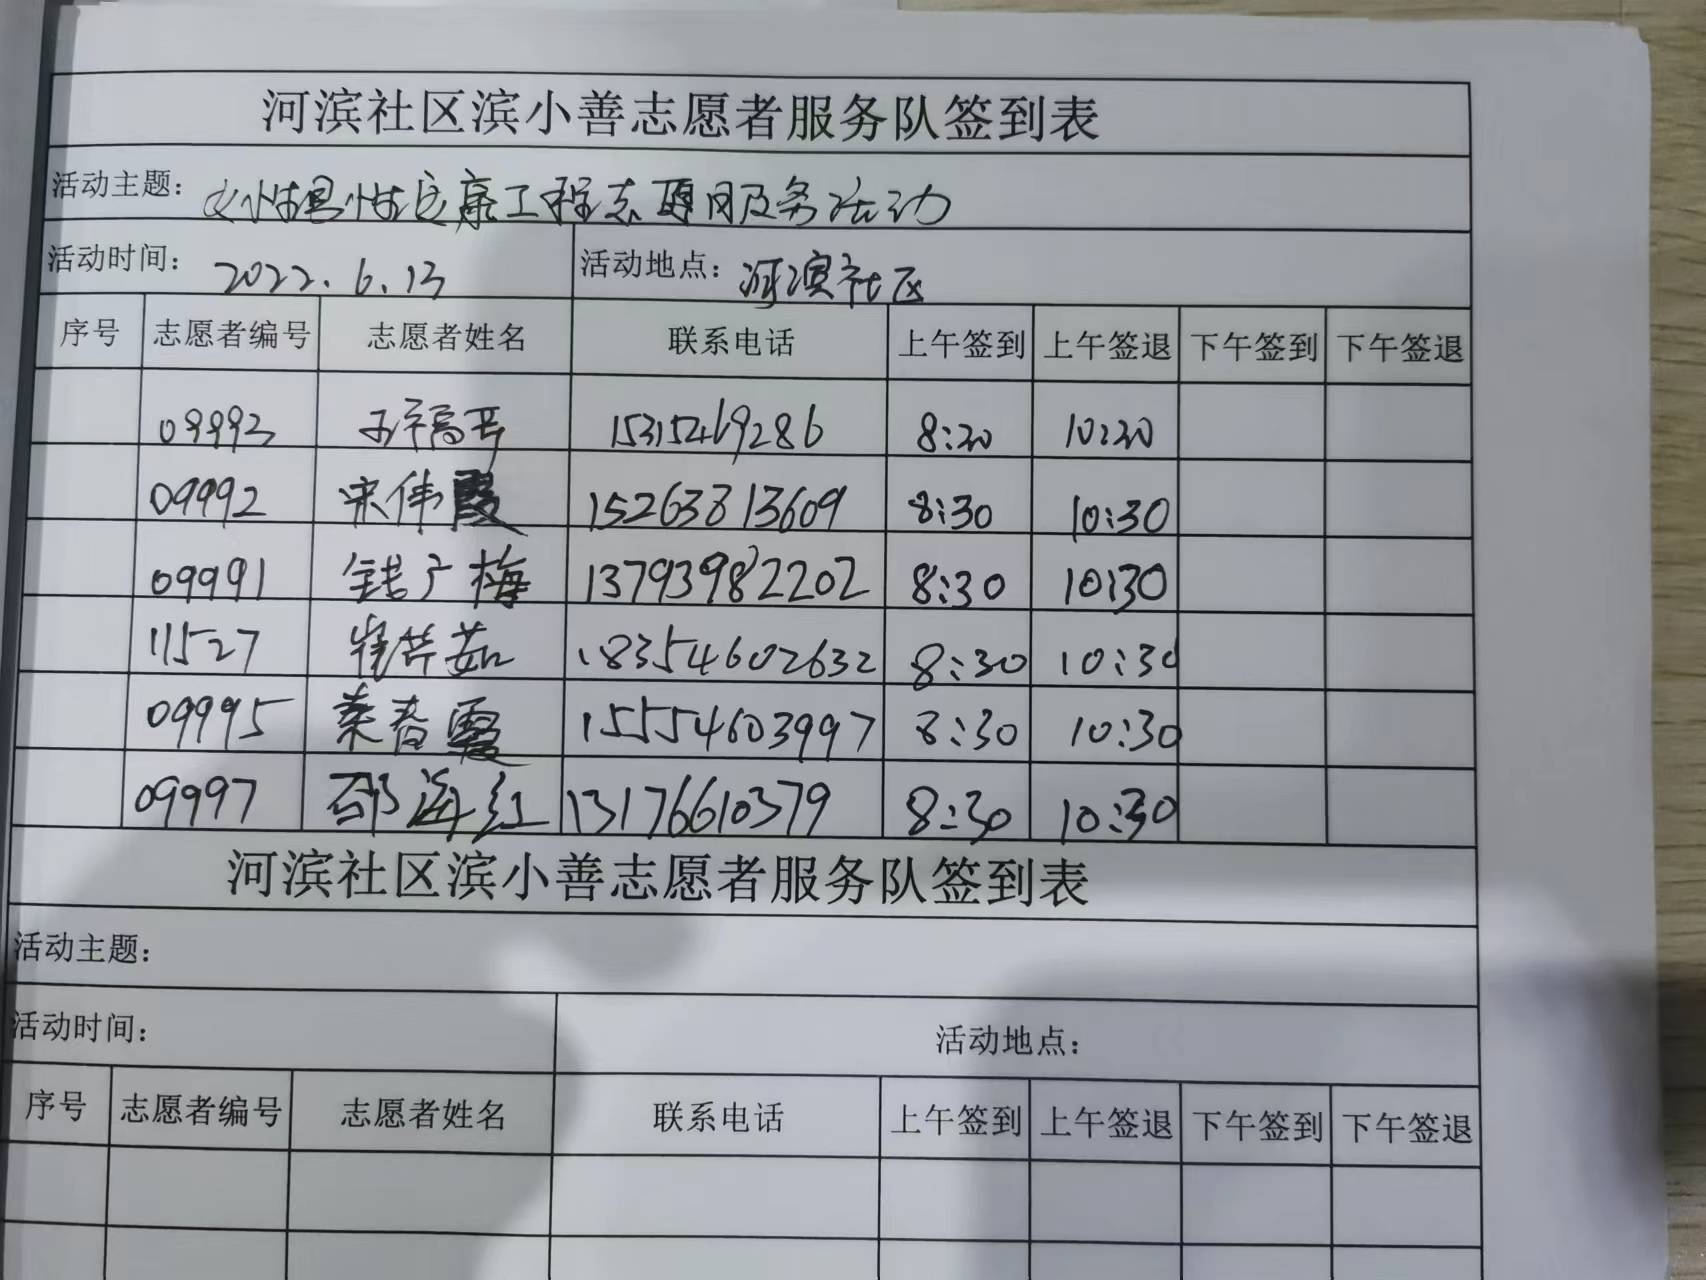 河滨社区滨小善志愿者服务队签到表
活动主题: 女性安康工程志愿服务活动
活动时间: 2022.6.13 活动地点: 河滨社区
序号 志愿者编号 志愿者姓名 联系电话 上午签到 上午签退 下午签到 下午签退
09993 15315469286 8:30 10:30
09992 宋伟霞 15263813609 8:30 10:30
09991 钱广梅 13793982202 8:30 10:30
11527 崔芹茹 18354602632 8:30 10:30
09995 秦春霞 15554603997 8:30 10:30
09997 邵海红 13176610379 8:30 10:30
河滨社区滨小善志愿者服务队签到表
活动主题:
活动时间: 活动地点:
序号 志愿者编号 志愿者姓名 联系电话 上午签到 上午签退 下午签到 下午签退